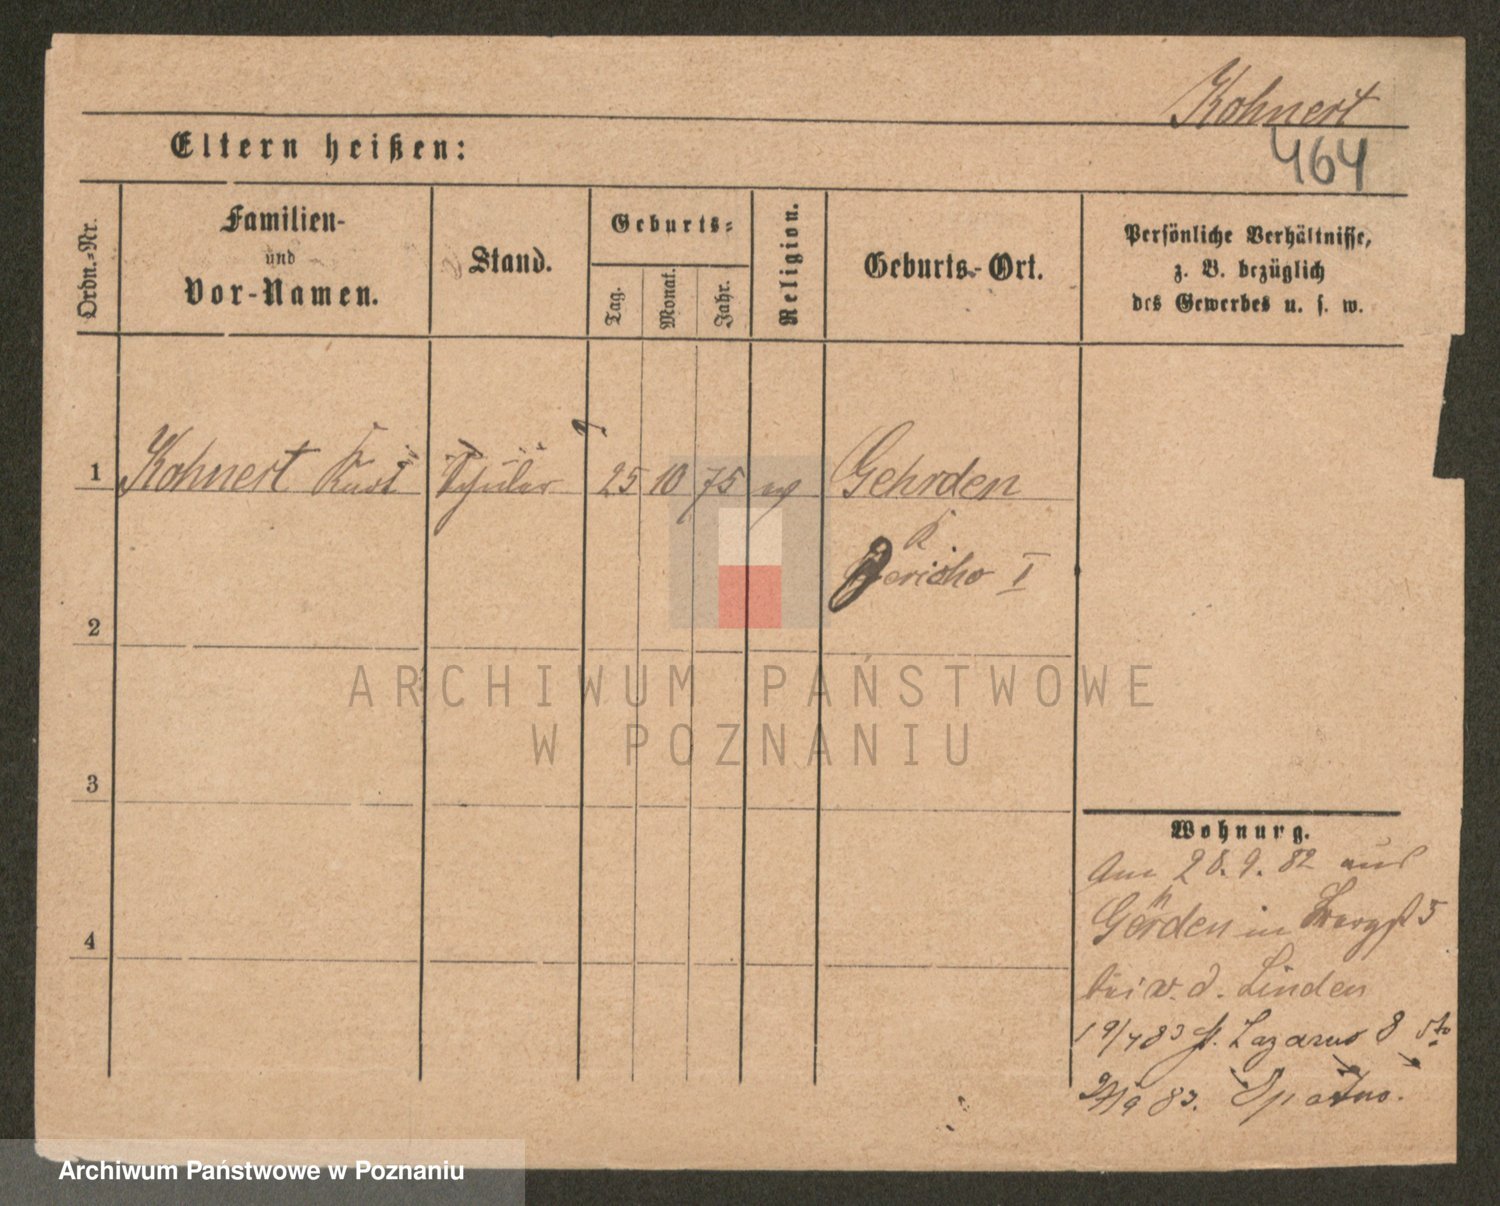 Kohnert
464
Eltern heißen:
Ordn.-Nr.
Familien-
und
Vor-Namen.
Stand.
Geburts-
Tag.
Monat.
Jahr.
Religion.
Geburts-Ort.
Persönliche Verhältnisse,
z. B. bezüglich
des Gewerbes u. s. w.
1 Kohnert Kurt Schüler 25 10 75 ev Gehrden
K.
Jericho I
2
3
4
Wohnung.
Am 28.9.82 aus
Gehrden in 5
bei v. d. Linden
19/7 83 St. Lazarus 8
9 83.
ARCHIWUM PAŃSTWOWE
W POZNANIU
Archiwum Państwowe w Poznaniu